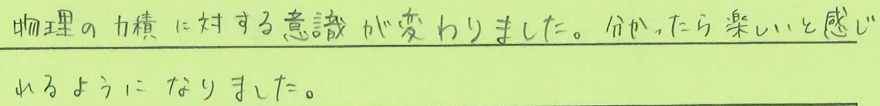 物理の力積に対する意識が変わりました。分かったら楽しいと感じ
れるようになりました。